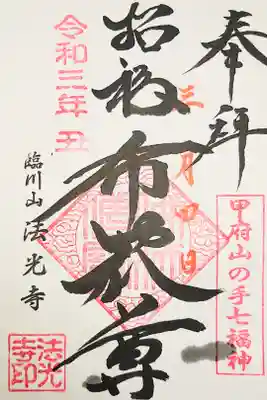 奉拝
甲府山の手七福神
三月四日
招福
布袋尊
令和三年丑
臨川山 法光寺
法光
寺印